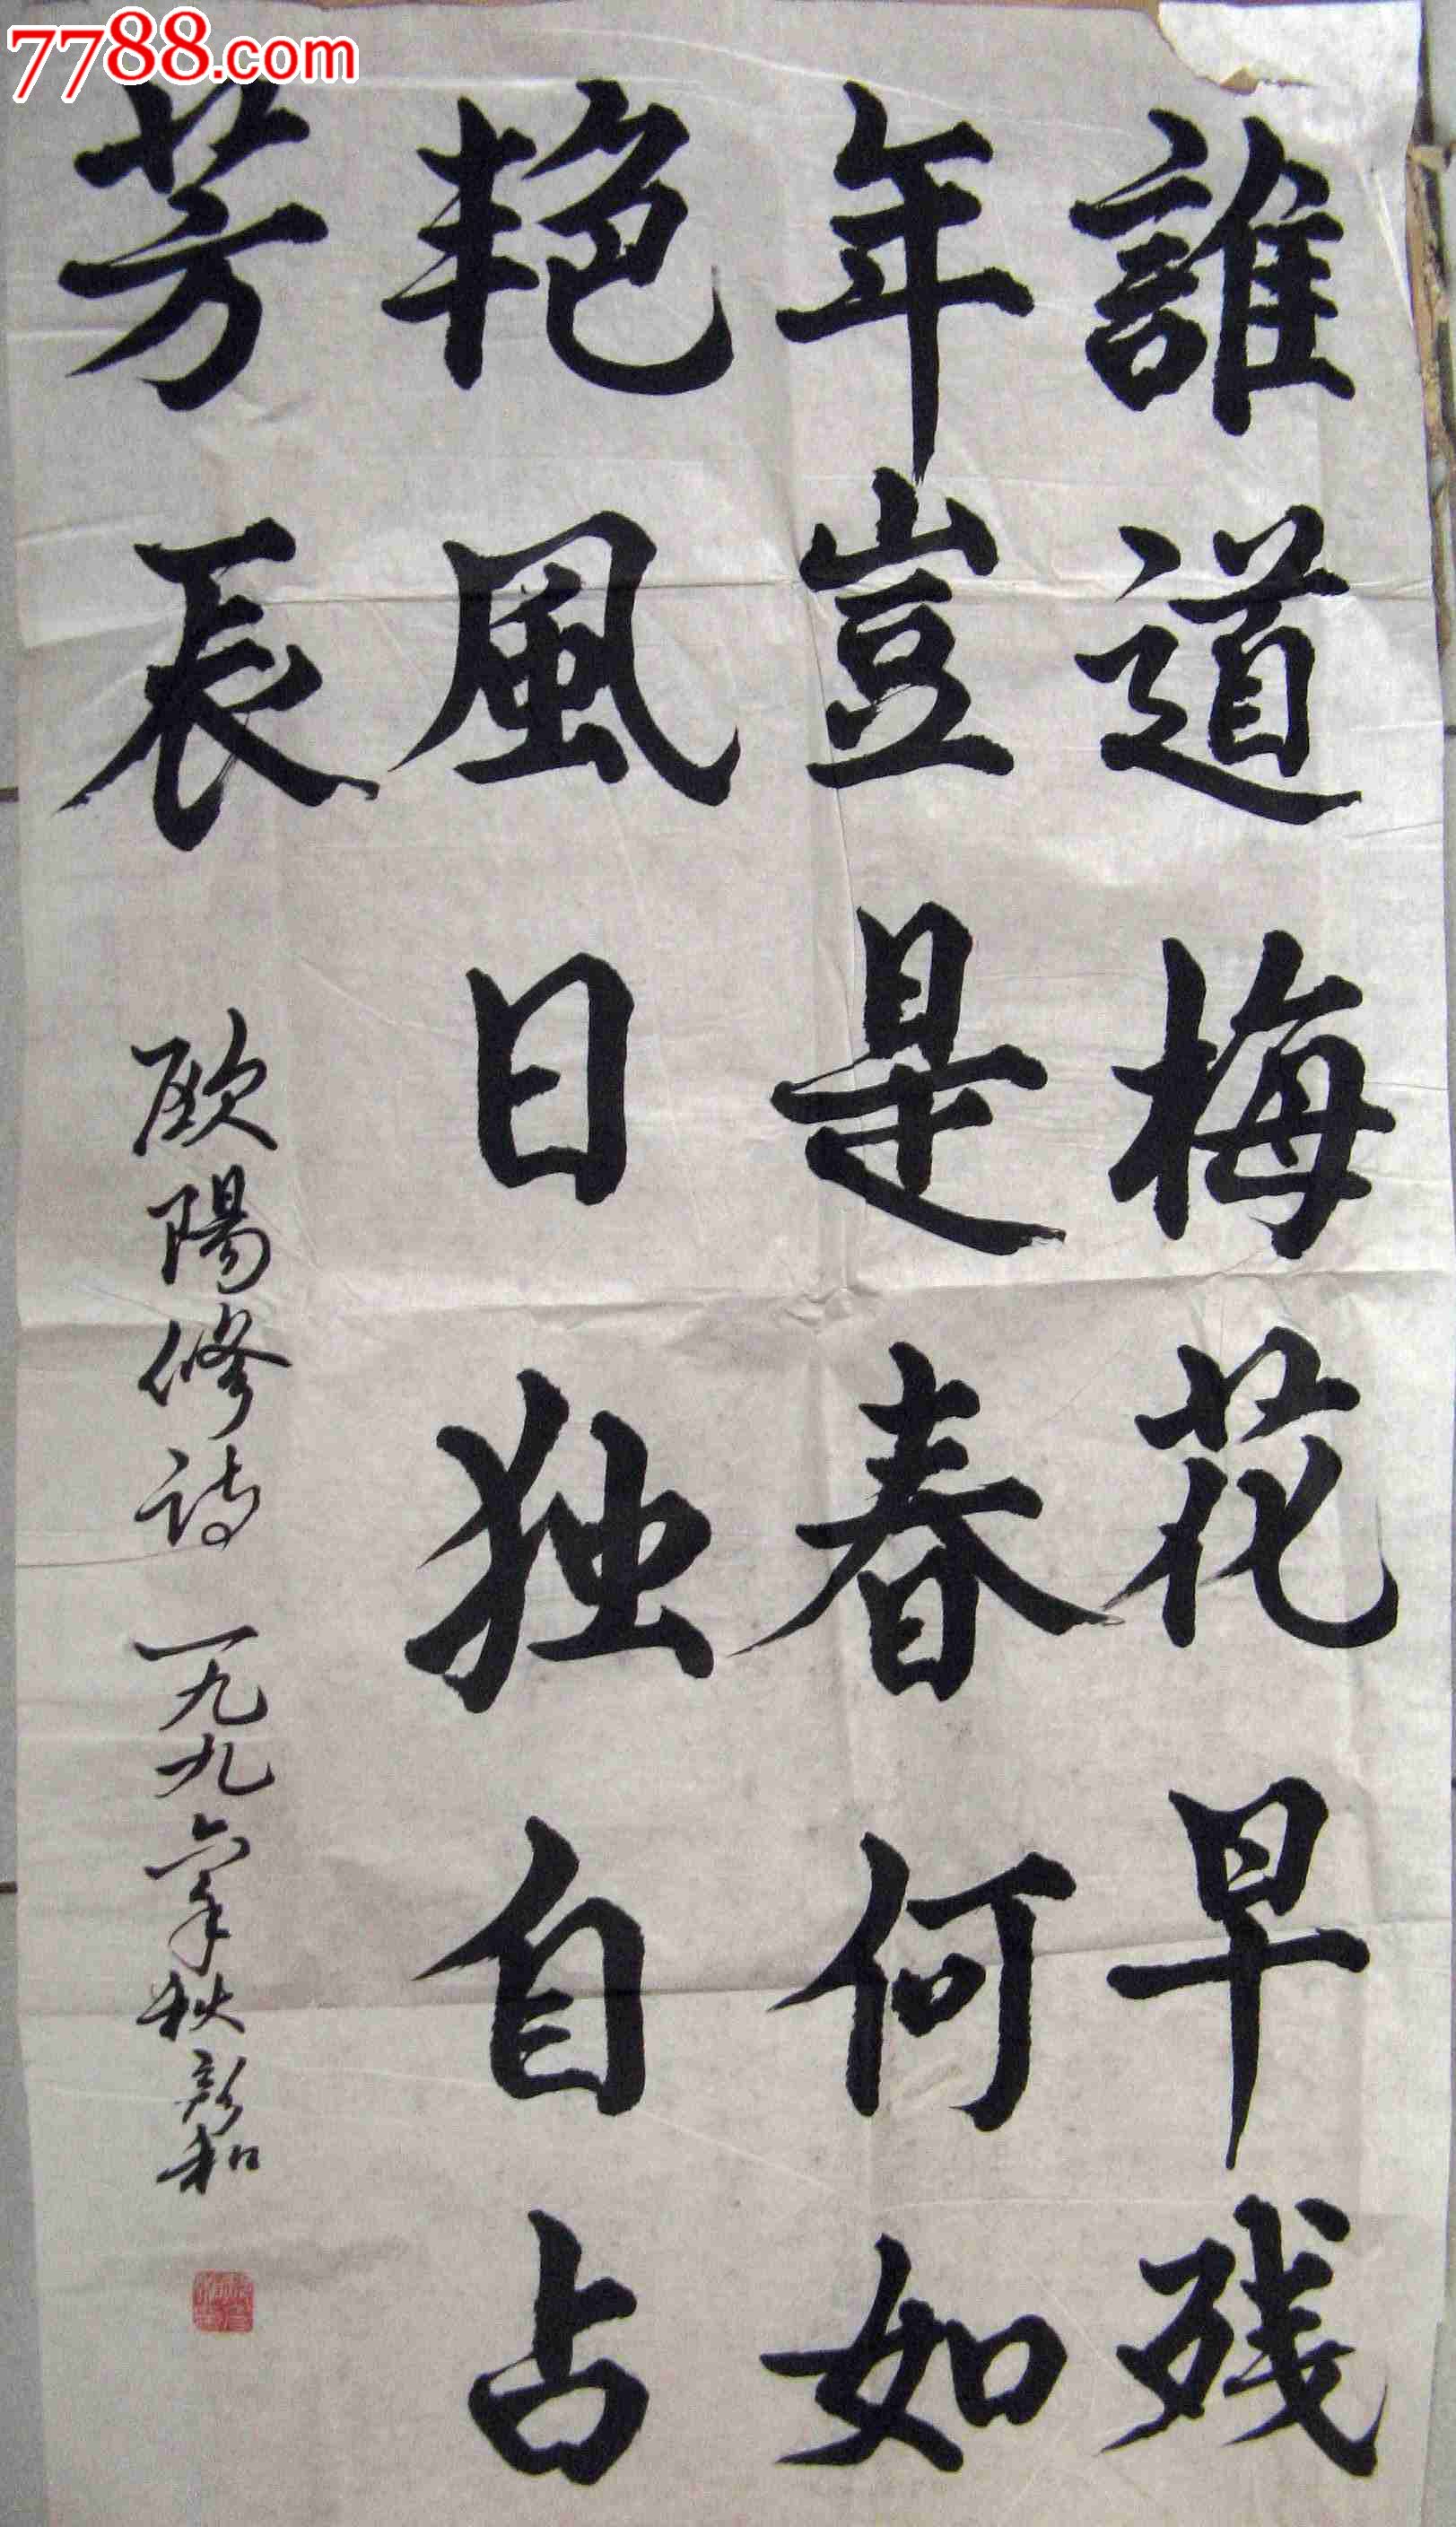 7788.com
誰道梅花早残
年豈是春何如
艳風日独自占
芳辰
欧陽修诗 一九九六年秋彭和